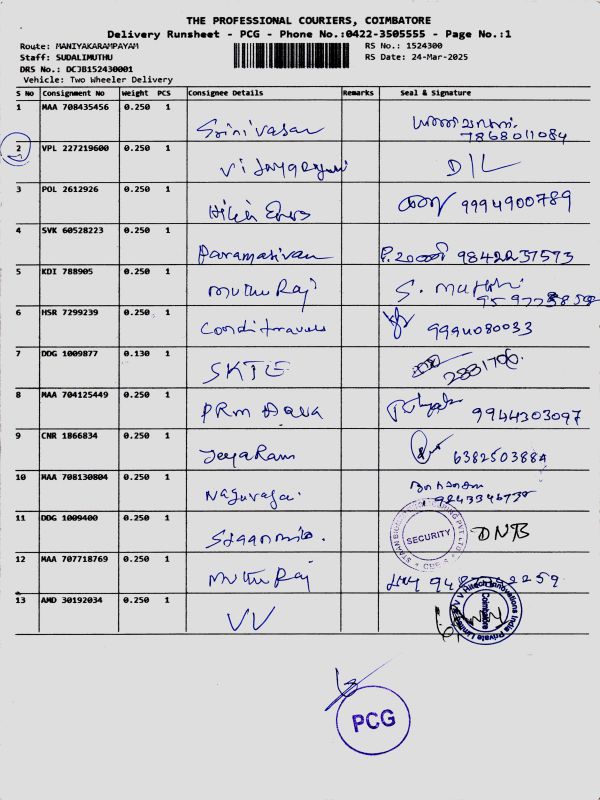 THE PROFESSIONAL COURIERS, COIMBATORE
Delivery Runsheet - PCG - Phone No.:0422-3505555 - Page No.:1
Route: MANIYAKARAMPAYAM RS No.: 1524300
Staff: SUDALIMUTHU RS Date: 24-Mar-2025
DRS No.: DCJB152430001
Vehicle: Two Wheeler Delivery
S No Consignment No Weight PCS Consignee Details Remarks Seal & Signature
1 MAA 708435456 0.250 1 Srinivasan 7868011084
2 VPL 227219600 0.250 1 D/L
3 POL 2612926 0.250 1 9994900789
4 SVK 60528223 0.250 1 Paramasivan
5 KDI 788905 0.250 1 Muthu Raj S.
6 HSR 7299239 0.250 1 9994080033
7 DDG 1009877 0.130 1
8 MAA 704125449 0.250 1 PRM 9944303097
9 CNR 1866834 0.250 1 JeyaRam 6382503884
10 MAA 708130804 0.250 1
11 DDG 1009400 0.250 1 SECURITY DNB
12 MAA 707718769 0.250 1 Muthu Raj
13 AMD 30192034 0.250 1 VV Hitech Innovations India Private Limited Coimbatore
PCG